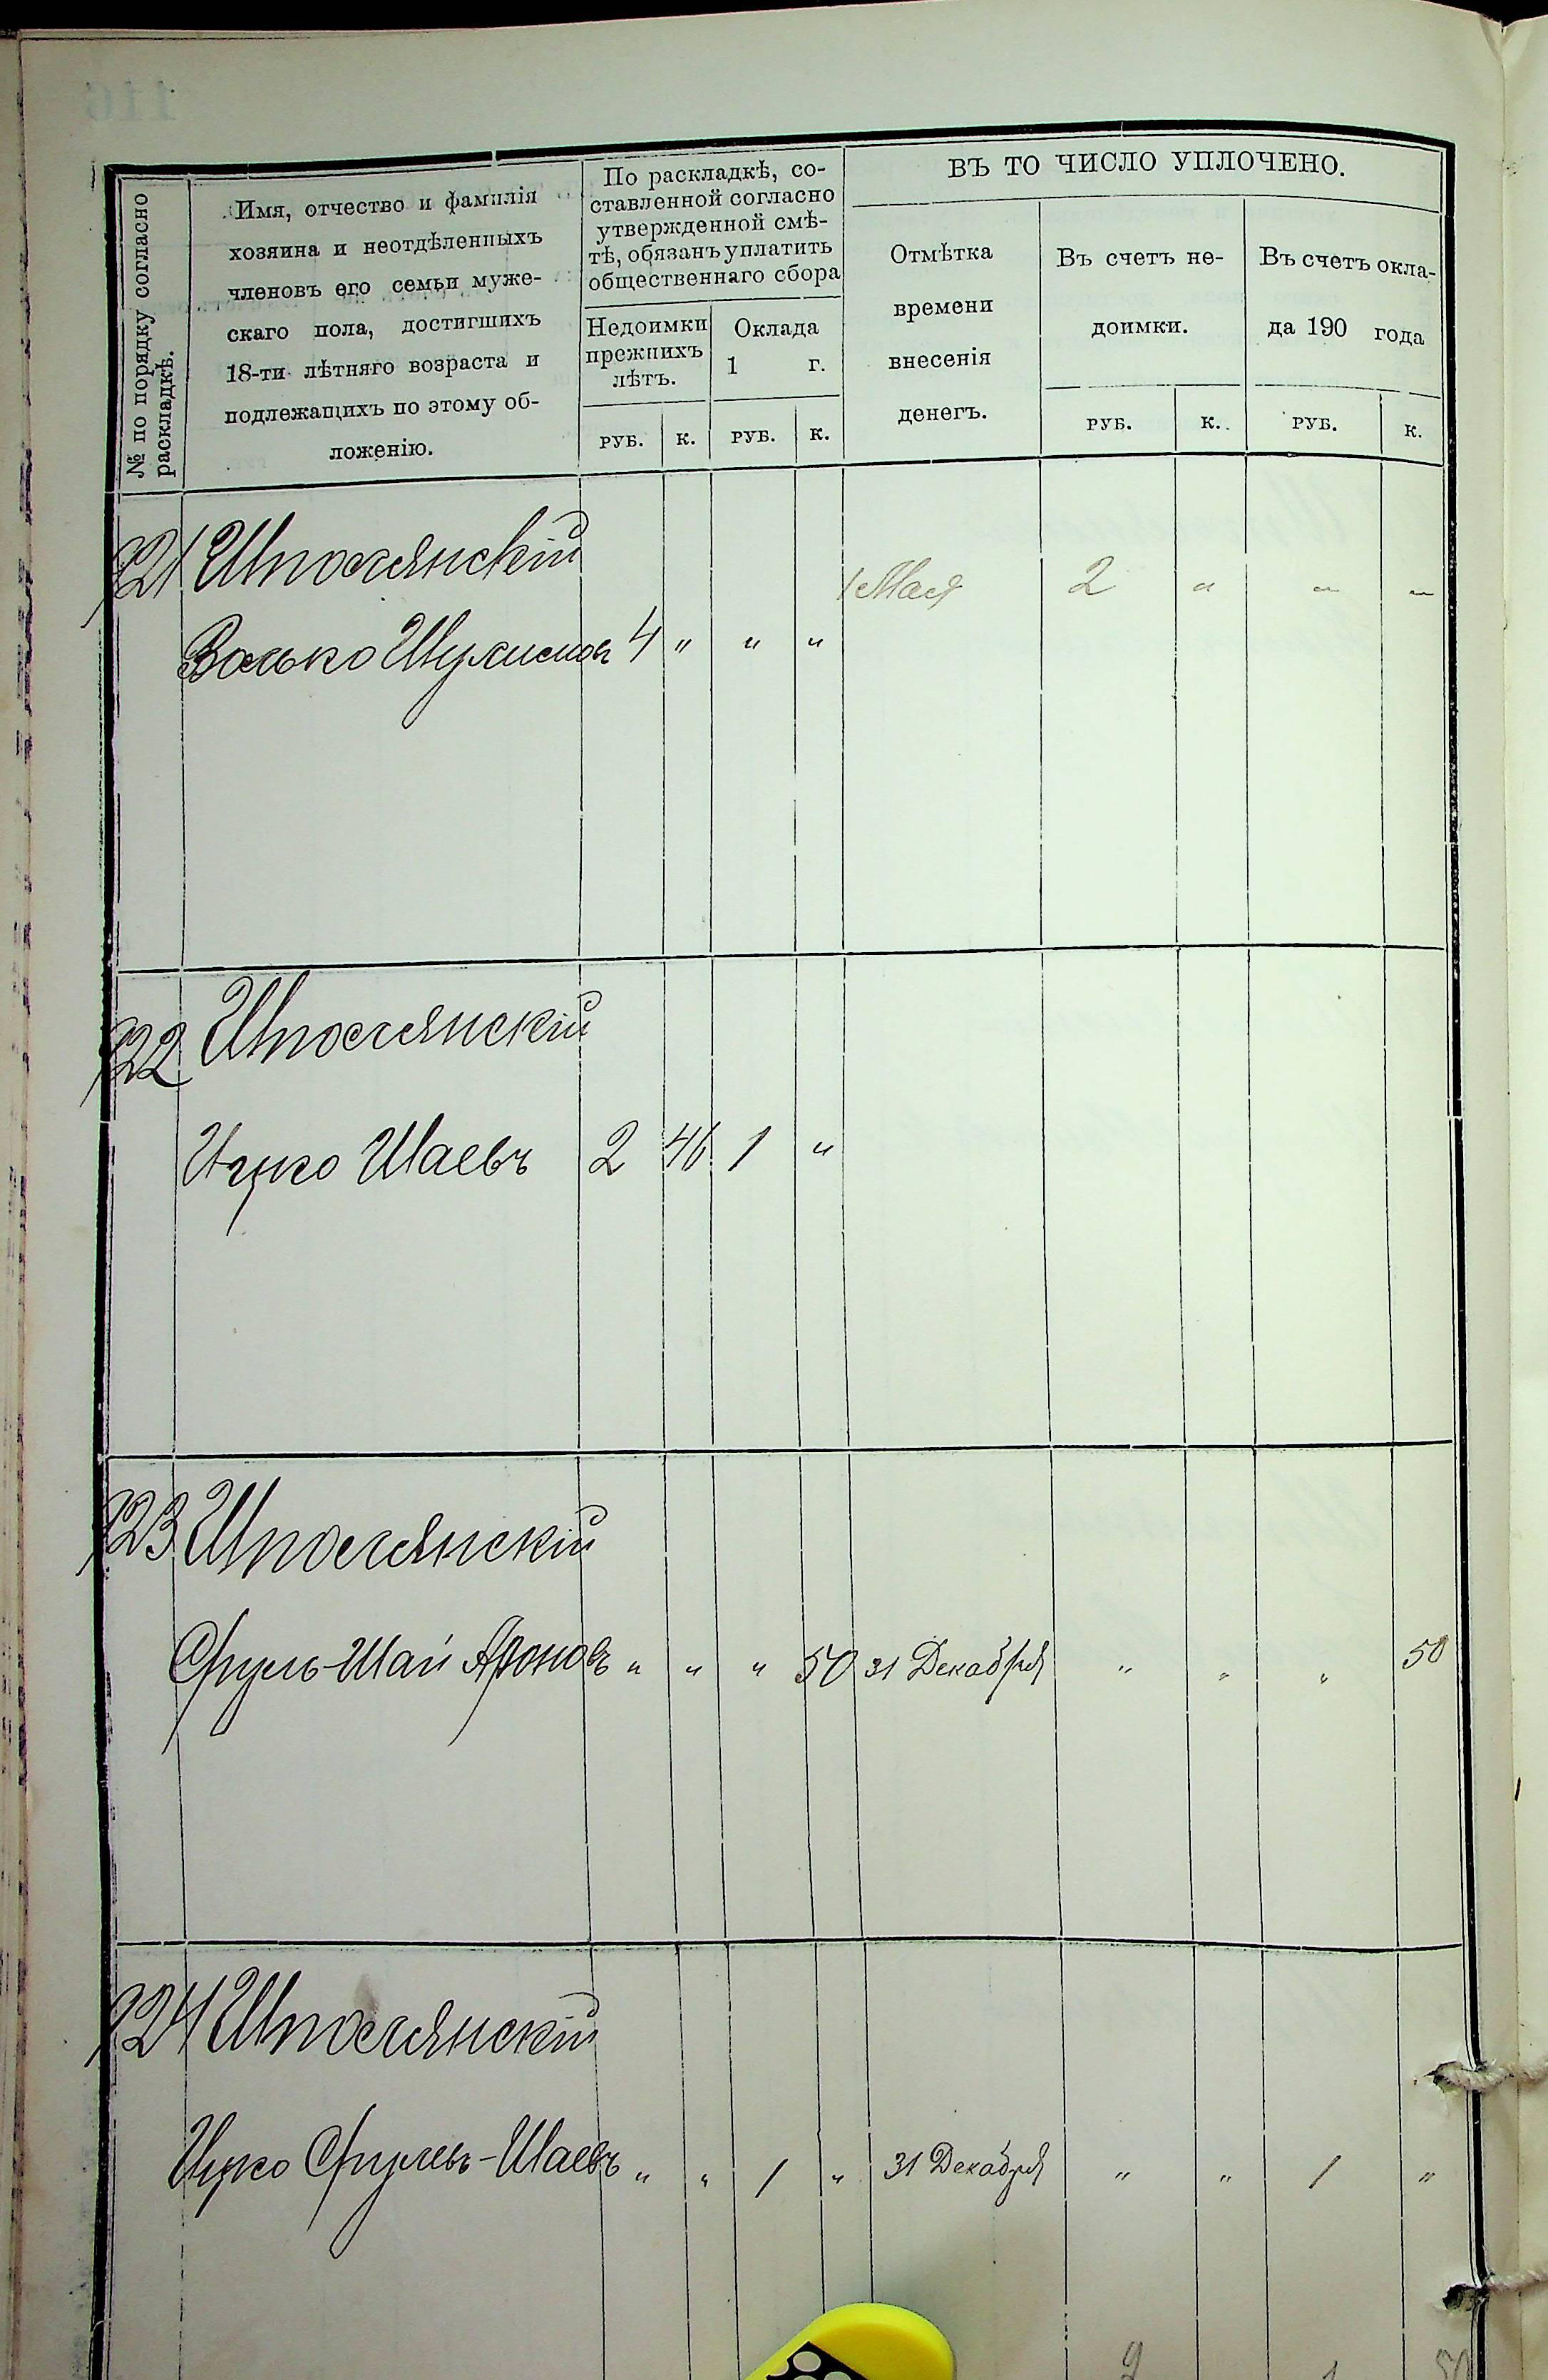 № по порядку согласно раскладкѣ.
Имя, отчество и фамилія
хозяина и неотдѣленныхъ
членовъ его семьи муже-
скаго пола, достигшихъ
18-ти лѣтняго возраста и
подлежащихъ по этому об-
ложенію.
По раскладкѣ, со-
ставленной согласно
утвержденной смѣ-
тѣ, обязанъ уплатить
общественнаго сбора
Недоимки
прежнихъ
лѣтъ.
Оклада
1 г.
РУБ. К. РУБ. К.
ВЪ ТО ЧИСЛО УПЛОЧЕНО.
Отмѣтка
времени
внесенія
денегъ.
Въ счетъ не-
доимки.
Въ счетъ окла-
да 190 года
РУБ. К. РУБ. К.
921 Шполянскій
1 Мая 2 " " "
Волько 4 " " "
922 Шполянскій
Ицко Шаевъ 2 46 1 "
923 Шполянскій
Сруль-Шая Ароновъ " " " 50 31 Декабря " " " 50
924 Шполянскій
Ицко Срулевъ-Шаевъ " " 1 " 31 Декабря " " 1 "
2 1 50